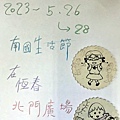 2023~5.26
→28
南國生活節
在恆春
北門廣場